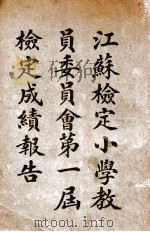 江蘇檢定小學教
員委員會第一屆
檢定成績報告
www.mtoou.info